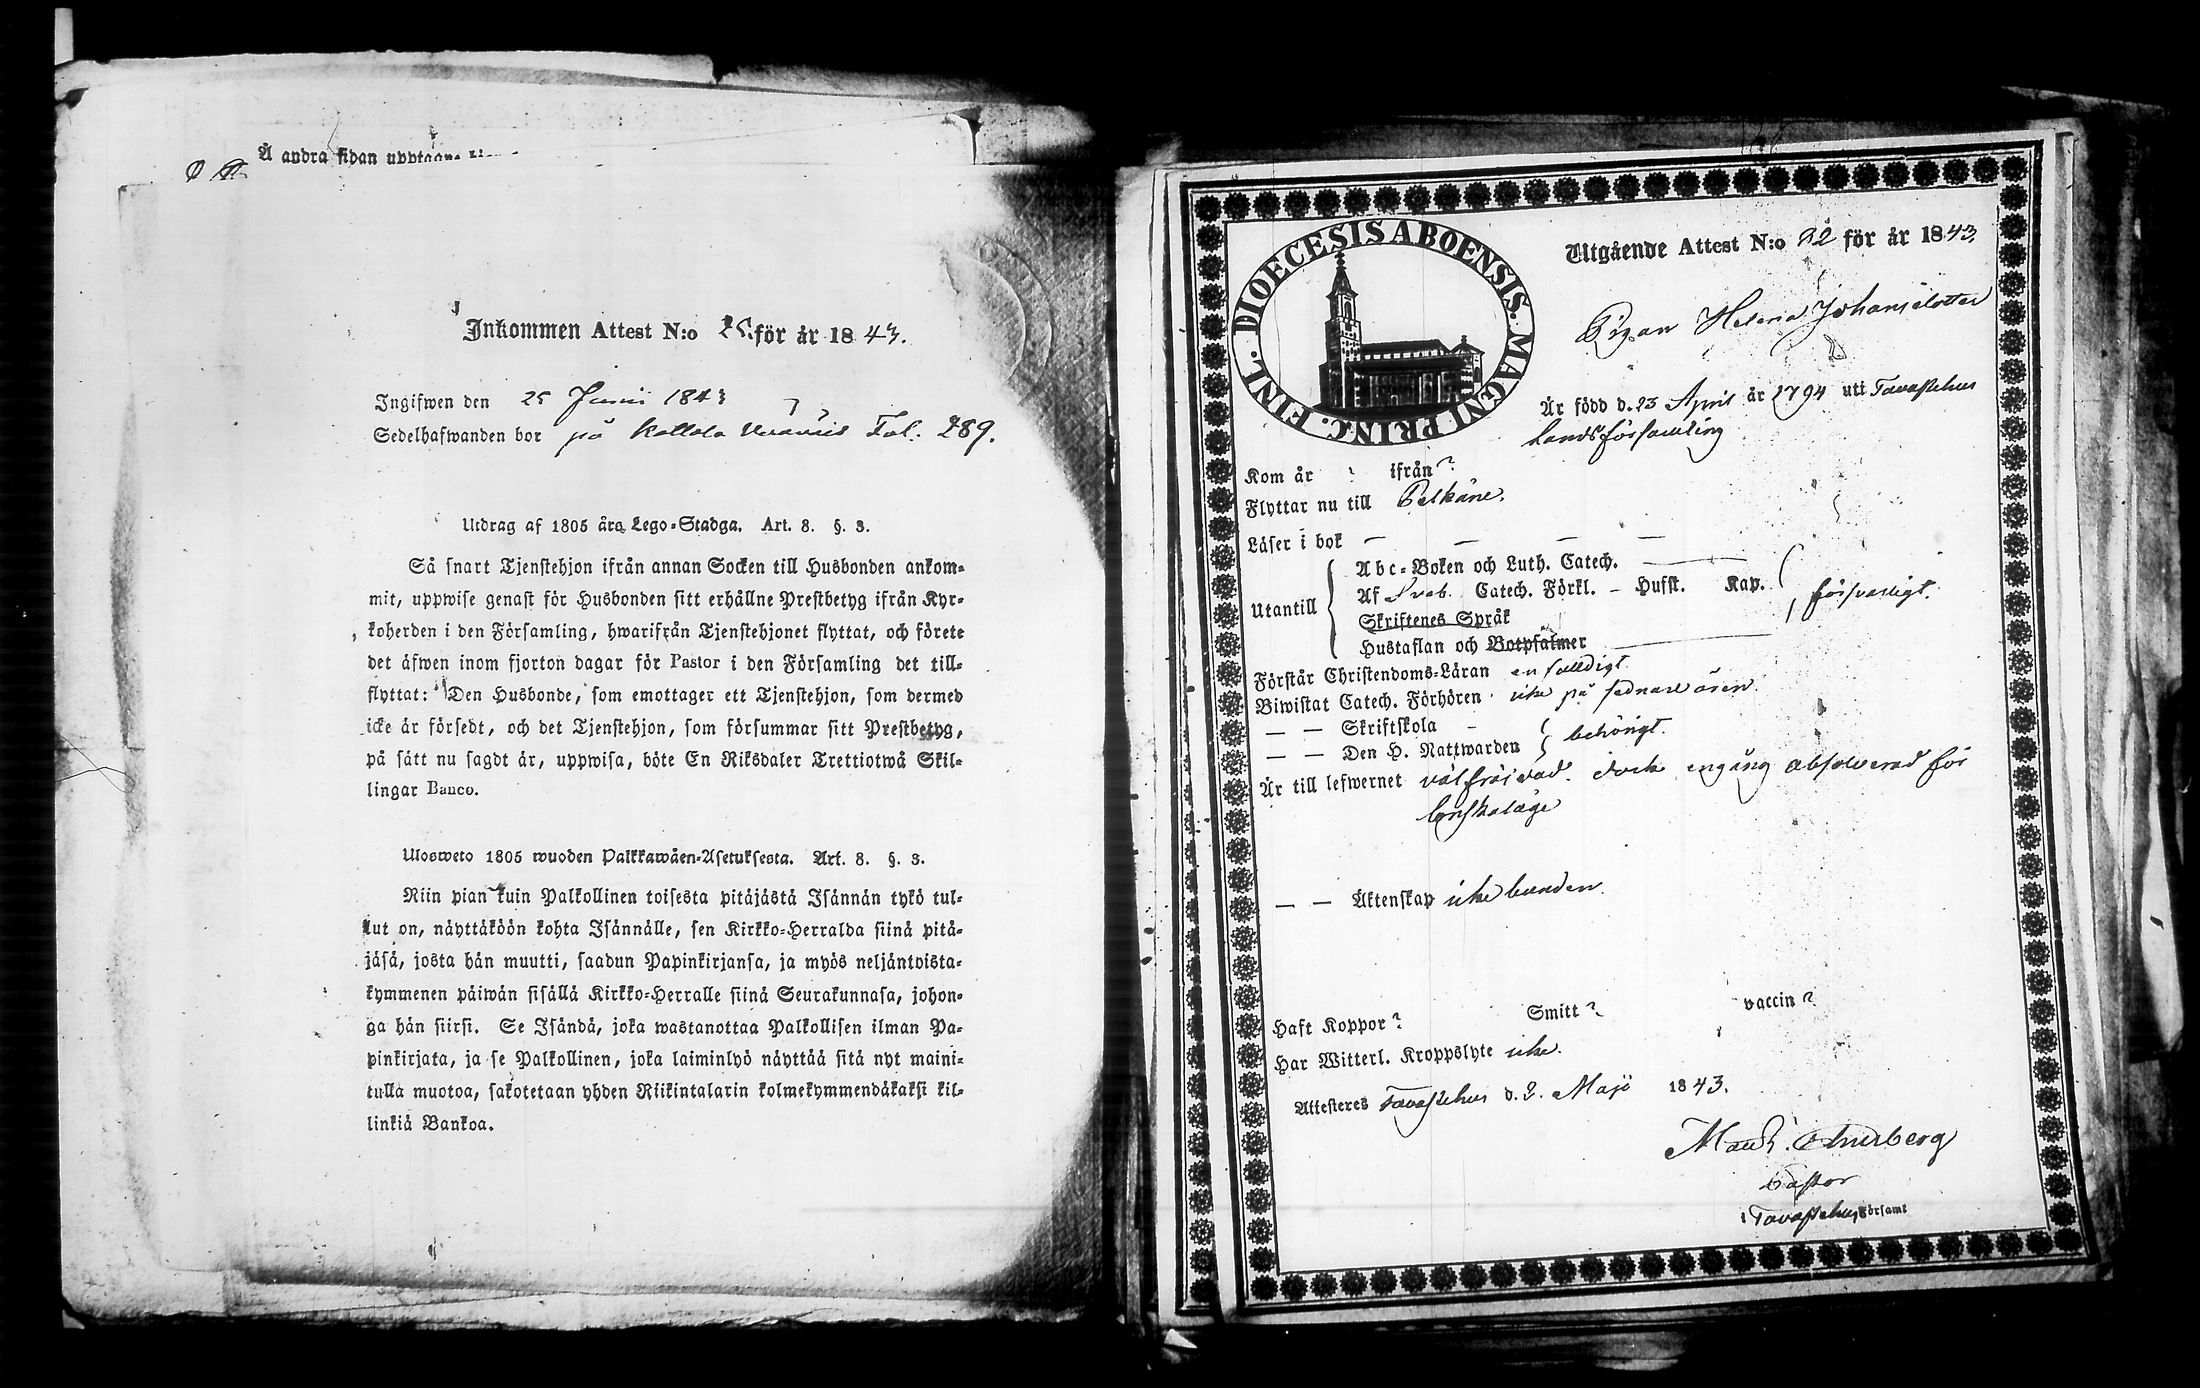 Å andra sidan upptagne
Inkommen Attest N:o 25 för år 1843.
Ingifwen den 25 Junii 1843
Sedelhafwanden bor på Kallala Fol. 289.
Utdrag af 1805 års Lego-Stadga. Art. 8. §. 3.
Så snart Tjenstehjon ifrån annan Socken till Husbonden ankom-
mit, uppwise genast för Husbonden sitt erhållne Prestbetyg ifrån Kyr-
koherden i den Församling, hwarifrån Tjenstehjonet flyttat, och förete
det äfwen inom fjorton dagar för Pastor i den Församling det till-
flyttat: Den Husbonde, som emottager ett Tjenstehjon, som dermed
icke är försedt, och det Tjenstehjon, som försummar sitt Prestbetyg,
på sätt nu sagdt är, uppwisa, böte En Riksdaler Trettiotwå Skil-
lingar Banco.
Ulosweto 1805 wuoden Palkkawäen-Asetuksesta. Art. 8. §. 3.
Niin pian kuin Palkollinen toisesta pitäjästä Isännän tykö tul-
lut on, näyttäköön kohta Isännälle, sen Kirkko-Herralda siinä pitä-
jäsä, josta hän muutti, saadun Papinkirjansa, ja myös neljäntoista-
kymmenen päiwän sisällä Kirkko-Herralle siinä Seurakunnasa, johon-
ga hän siirsi. Se Isändä, joka wastanottaa Palkollisen ilman Pa-
pinkirjata, ja se Palkollinen, joka laiminlyö näyttää sitä nyt maini-
tulla muotoa, sakotetaan yhden Riikintalarin kolmekymmendäkaksi kil-
linkiä Bankoa.
DIOECESIS ABOENSIS. MAGNI PRINC. FINL.
Utgående Attest N:o 82 för år 1843.
Pigan Helena Johansdotter
Är född d. 23 April år 1794 utі Tavastehus
Landsförsamling
Kom år ? ifrån ?
Flyttar nu till Pelkäne.
Läser i bok — — — —
Utantill
Abc-Boken och Luth. Catech. ———
Af Sveb. Catech. Förkl. – Husst. Kap.
försvarligt.
Skriftenes Språk
Hustaflan och Botpsalmer ———
Förstår Christendoms-Läran enfaldigt.
Biwistat Catech. Förhören icke på sednare åren.
— — Skriftskola -
— — Den H. Nattwarden behörigt.
Är till lefwernet välfräjdad. dock engång absolverad för
lönskaläge
— — Äktenskap icke bunden.
Haft Koppor ? Smitt ? vaccin ?
Har Witterl. Kroppslyte icke.
Attesteres Tavastehus d. 2. Maji 1843.
Pastor
i Tavastehus Församl